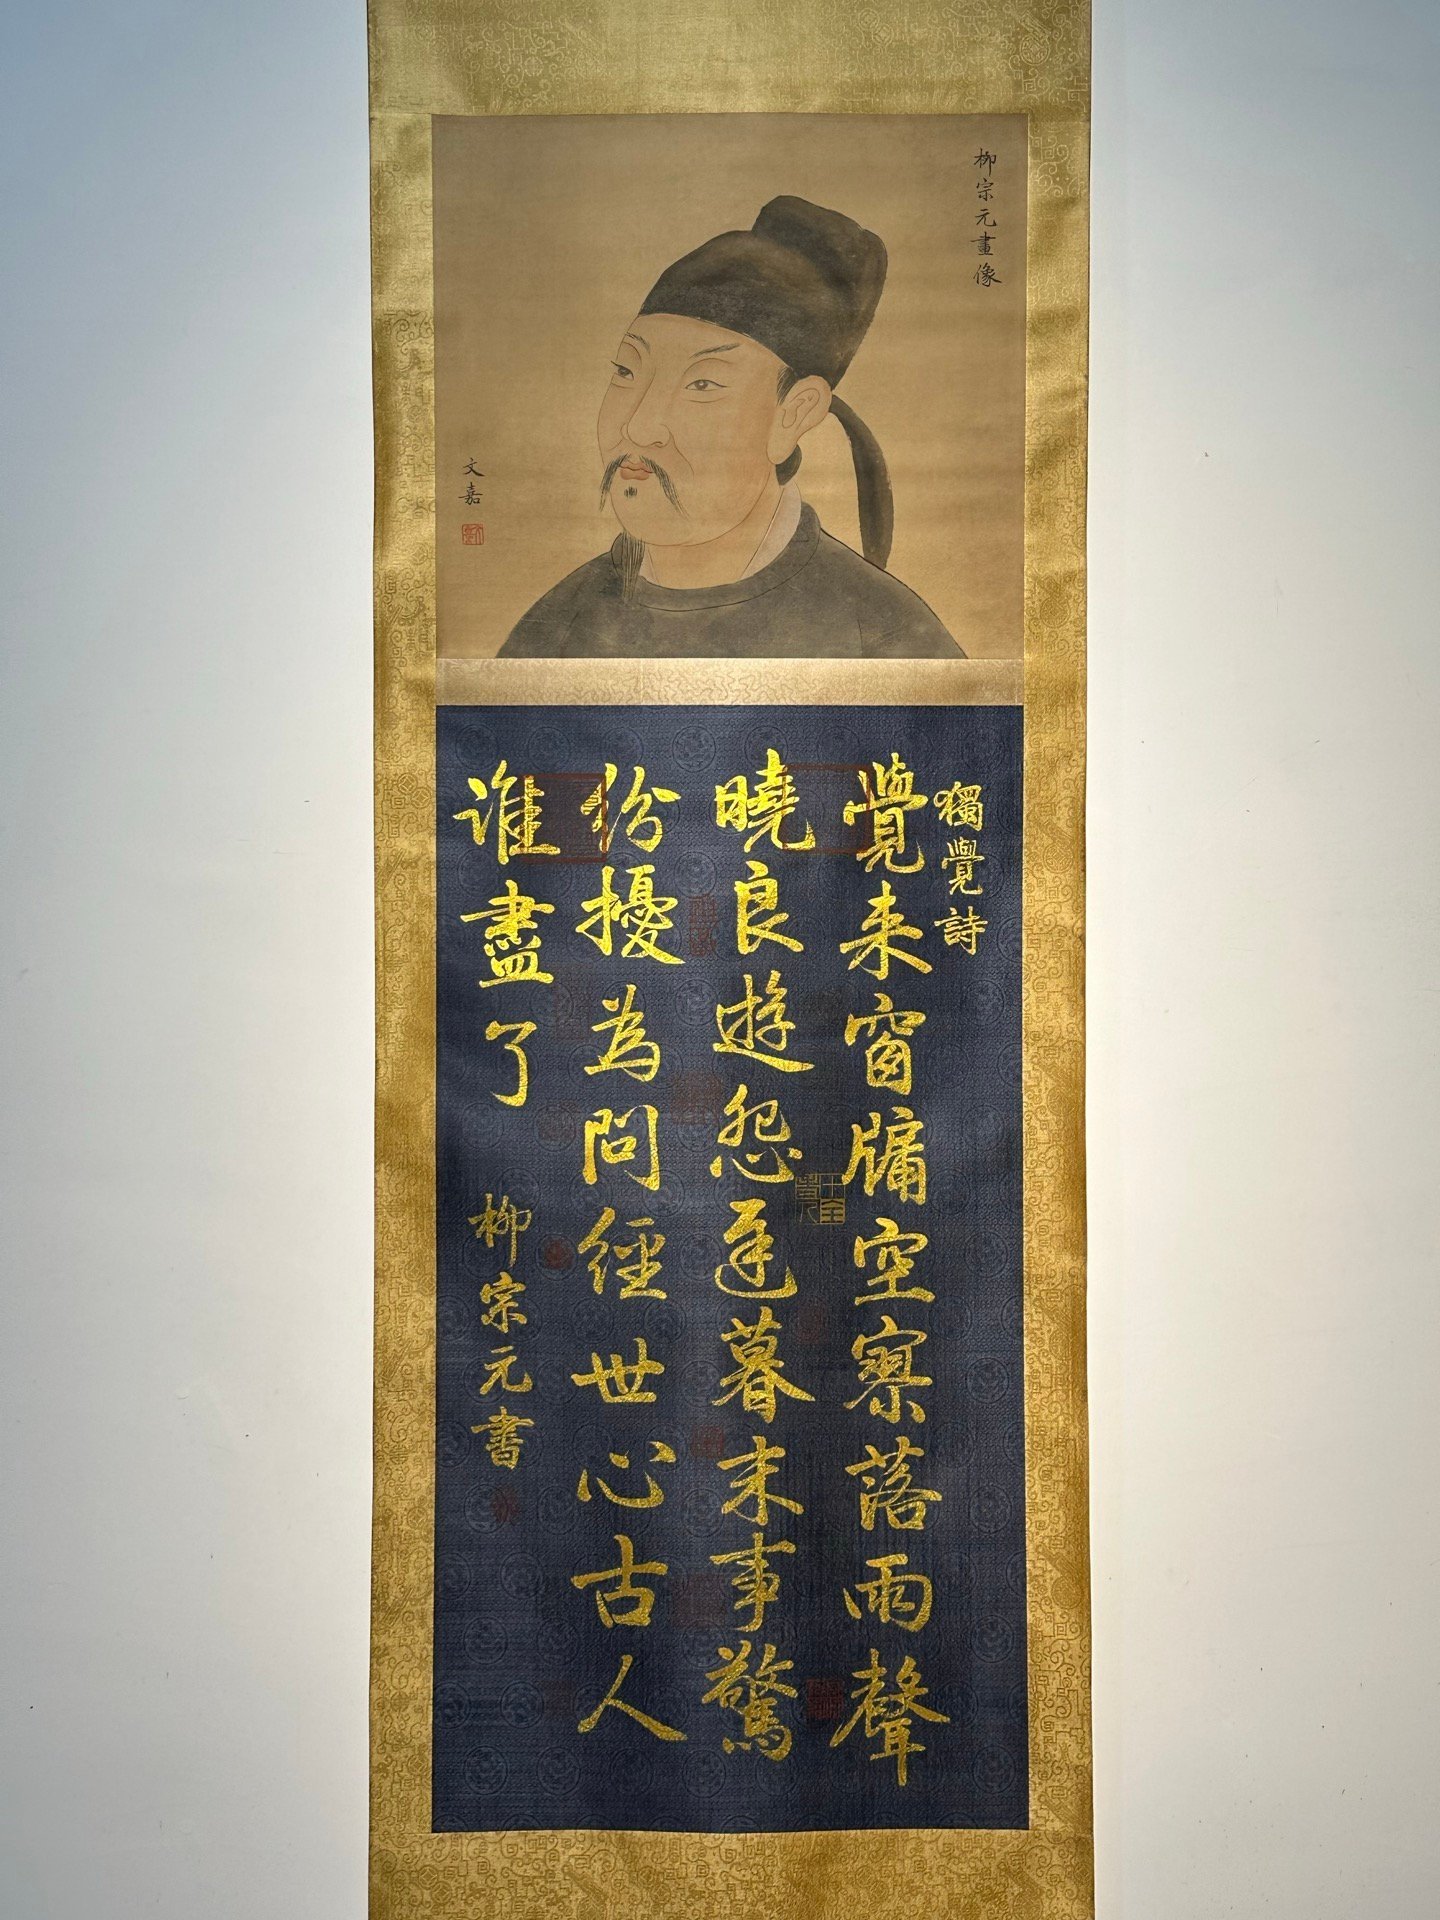 柳宗元畫像
文嘉
獨覺詩
覺来窗牖空寥落雨聲
曉良遊怨遲暮末事驚
紛擾為問經世心古人
谁盡了
柳宗元書